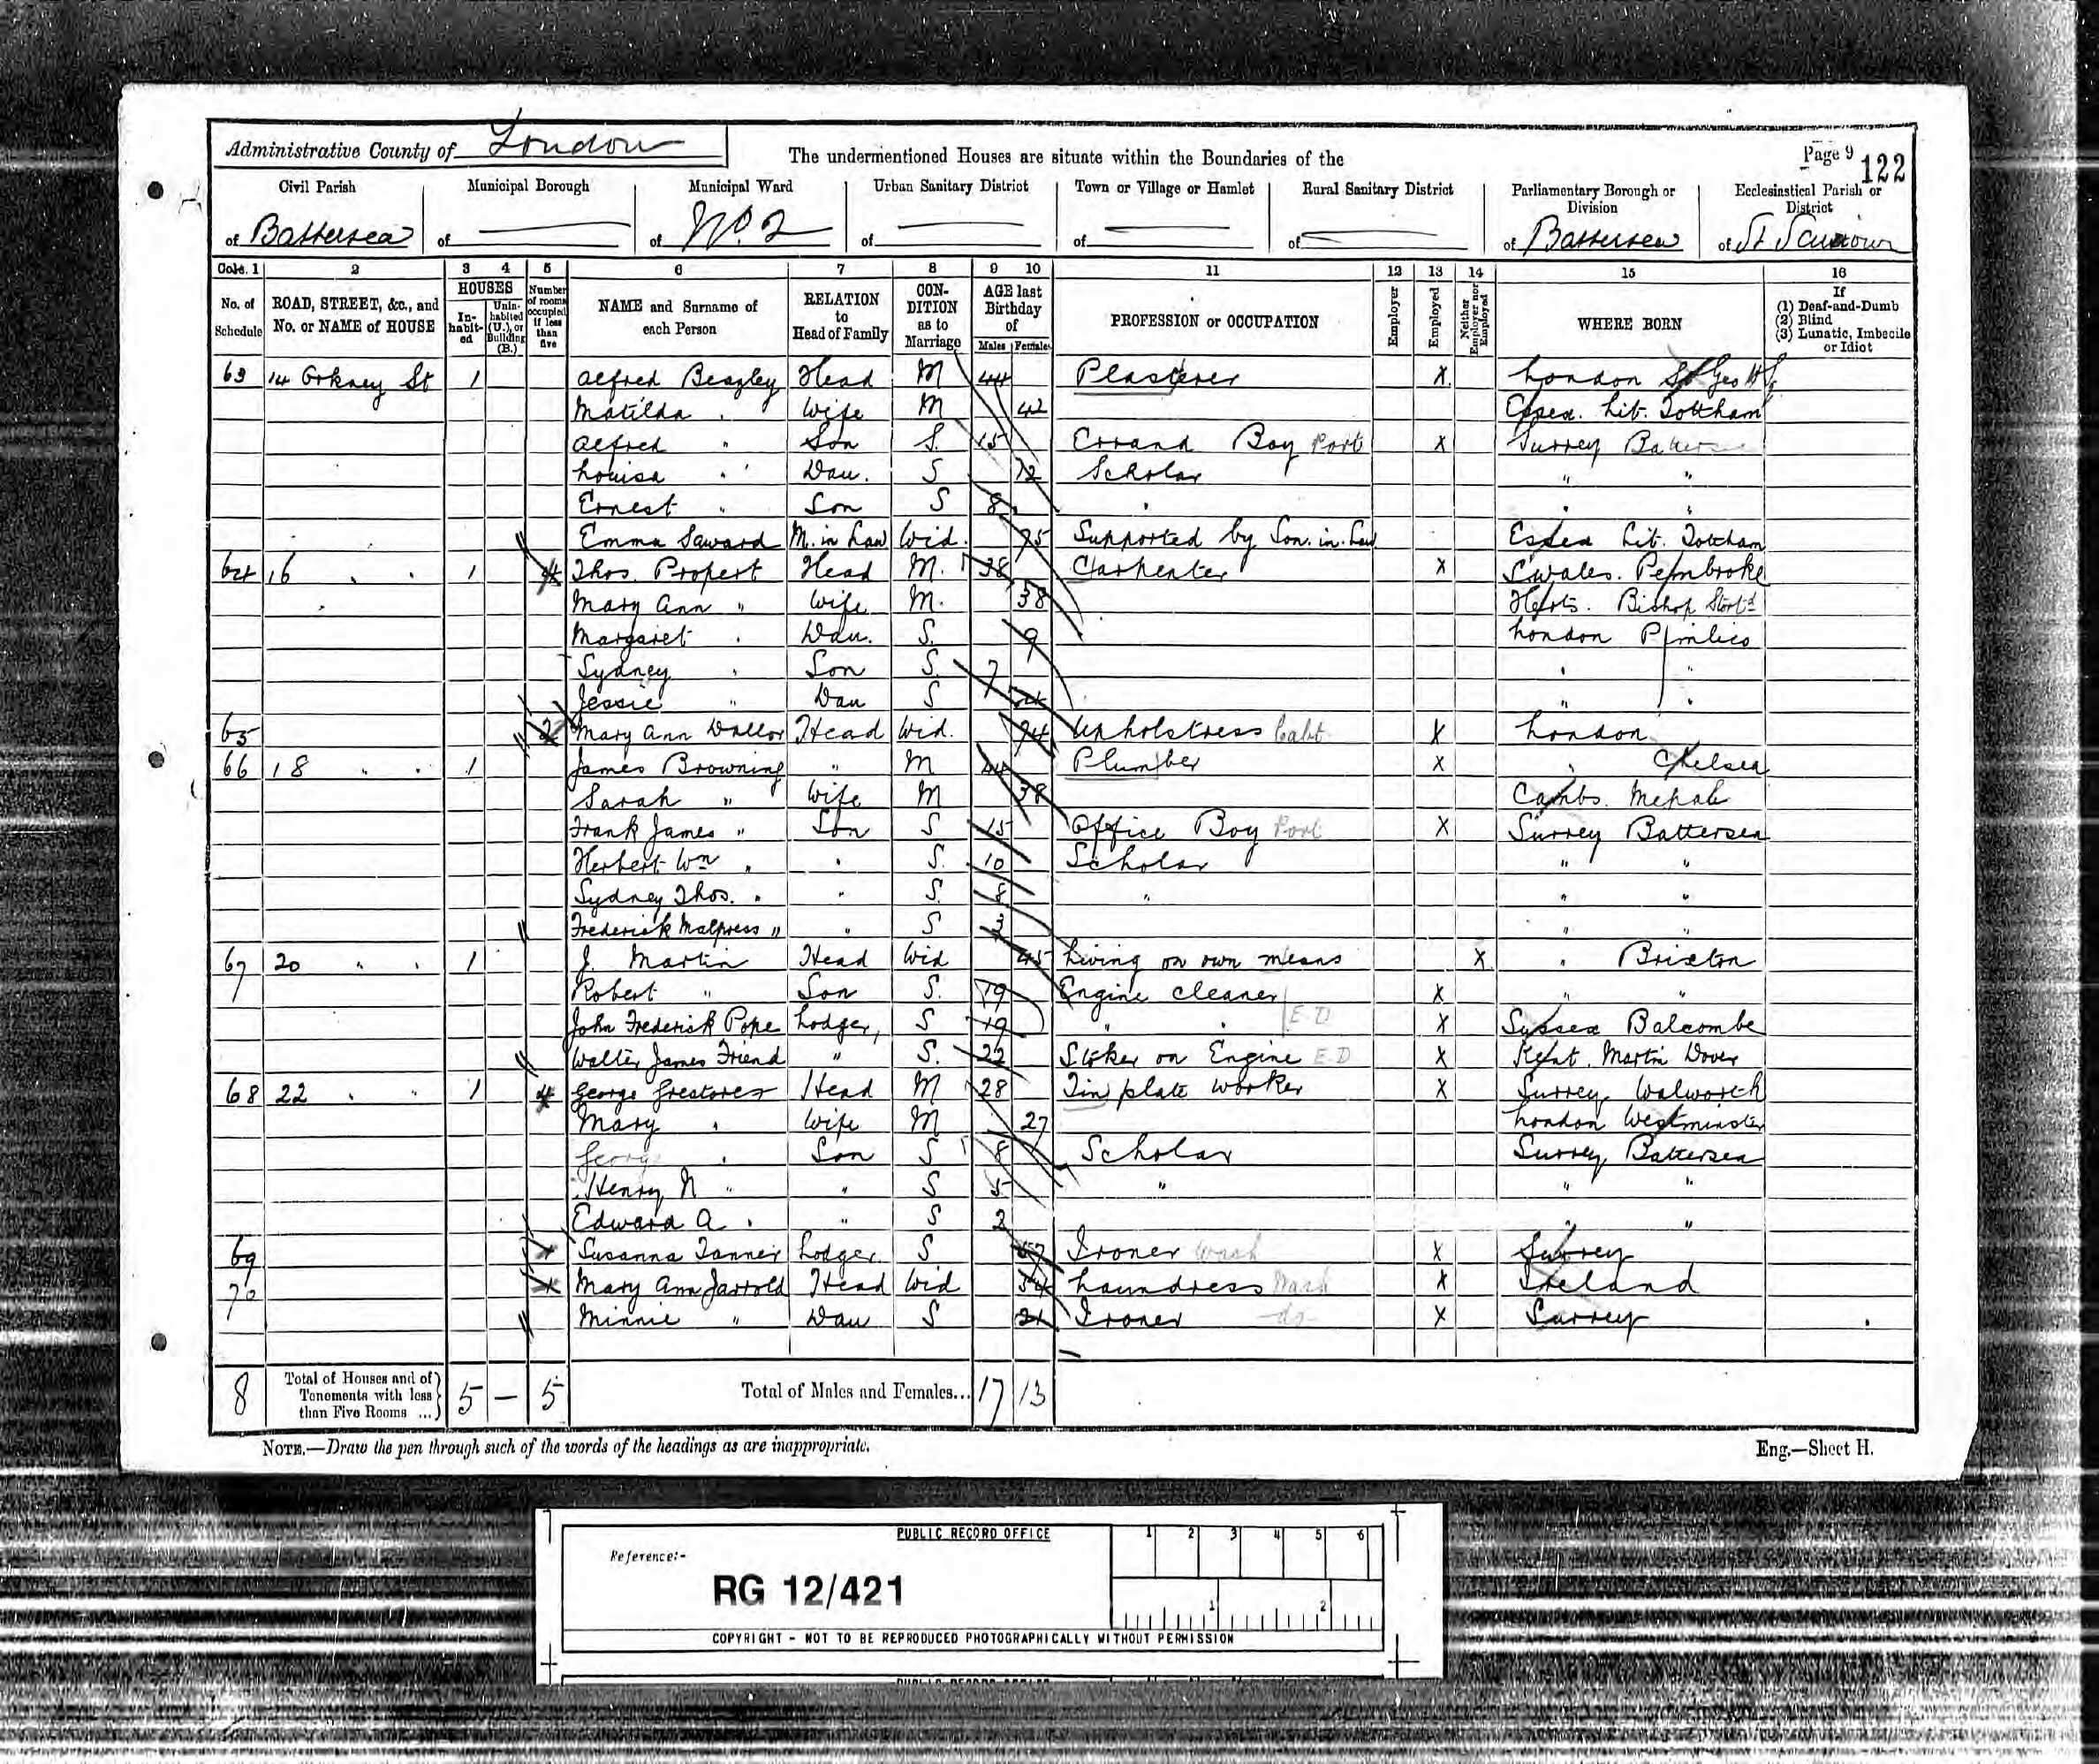 Administrative County of London
The undermentioned Houses are situate within the Boundaries of the
Page 9
122
Civil Parish Municipal Borough Municipal Ward Urban Sanitary District Town or Village or Hamlet Rural Sanitary District Parliamentary Borough or Division Ecclesiastical Parish or District
of Battersea of — of No. 2 of — of — of — of Battersea of St Saviour
Cols. 1 2 3 4 5 6 7 8 9 10 11 12 13 14 15 16
No. of Schedule ROAD, STREET, &c., and No. or NAME of HOUSE HOUSES Inhabited Uninhabited (U.), or Building (B.) Number of rooms occupied if less than five NAME and Surname of each Person RELATION to Head of Family CONDITION as to Marriage AGE last Birthday of Males Females PROFESSION or OCCUPATION Employer Employed Neither Employer nor Employed WHERE BORN If (1) Deaf-and-Dumb (2) Blind (3) Lunatic, Imbecile or Idiot
63 14 Orkney St 1 Alfred Beazley Head M 44 Plasterer X London St Geo
Matilda " Wife M 42 Essex. Lit. Tottham
Alfred " Son S. 15 Errand Boy Port X Surrey Battersea
Louisa " Dau. S 12 Scholar " "
Ernest " Son S 8 " " "
Emma Saward M. in Law Wid. 75 Supported by Son. in. Law Essex Lit. Tottham
64 16 " " 1 4 Thos. Propert Head M. 38 Carpenter X S. Wales. Pembroke
Mary Ann " Wife M. 38 Herts. Bishop Stortd
Margaret " Dau. S. 9 London Pimlico
Sydney " Son S. 7 " "
Jessie " Dau S " "
65 2 Mary Ann Head Wid. 74 Upholstress Cabt X London
66 18 " " 1 James Browning " M 44 Plumber X " Chelsea
Sarah " Wife M 38 Cambs. Mepal
Frank James " Son S 15 Office Boy Port X Surrey Battersea
Herbert Wm " " S. 10 Scholar " "
Sydney Thos. " " S. 8 " " "
Frederick Malpress " " S 3 " "
67 20 " " 1 J. Martin Head Wid 45 Living on own means X " Brixton
Robert " Son S. 19 Engine cleaner X " "
John Frederick Pope Lodger, S 19 " " E.D X Sussex Balcombe
Walter James Friend " S. 22 Stoker on Engine E.D X Kent. Martin Dover
68 22 " " 1 4 George Head M 28 Tin plate worker X Surrey Walworth
Mary " Wife M 27 London Westminster
George " Son S 8 Scholar Surrey Battersea
Henry N " " S 5 " " "
Edward A " " S 2 " "
69 Susanna Tanner Lodger S Ironer Wash X Surrey
70 Mary Ann Jarrold Head Wid 54 Laundress Wash X Ireland
Minnie " Dau S 21 Ironer do X Surrey
8 Total of Houses and of Tenements with less than Five Rooms ... 5 — 5 Total of Males and Females... 17 13
NOTE.—Draw the pen through such of the words of the headings as are inappropriate.
Eng.—Sheet H.
PUBLIC RECORD OFFICE
1 2 3 4 5 6
Reference:-
RG 12/421
1 2
COPYRIGHT - NOT TO BE REPRODUCED PHOTOGRAPHICALLY WITHOUT PERMISSION